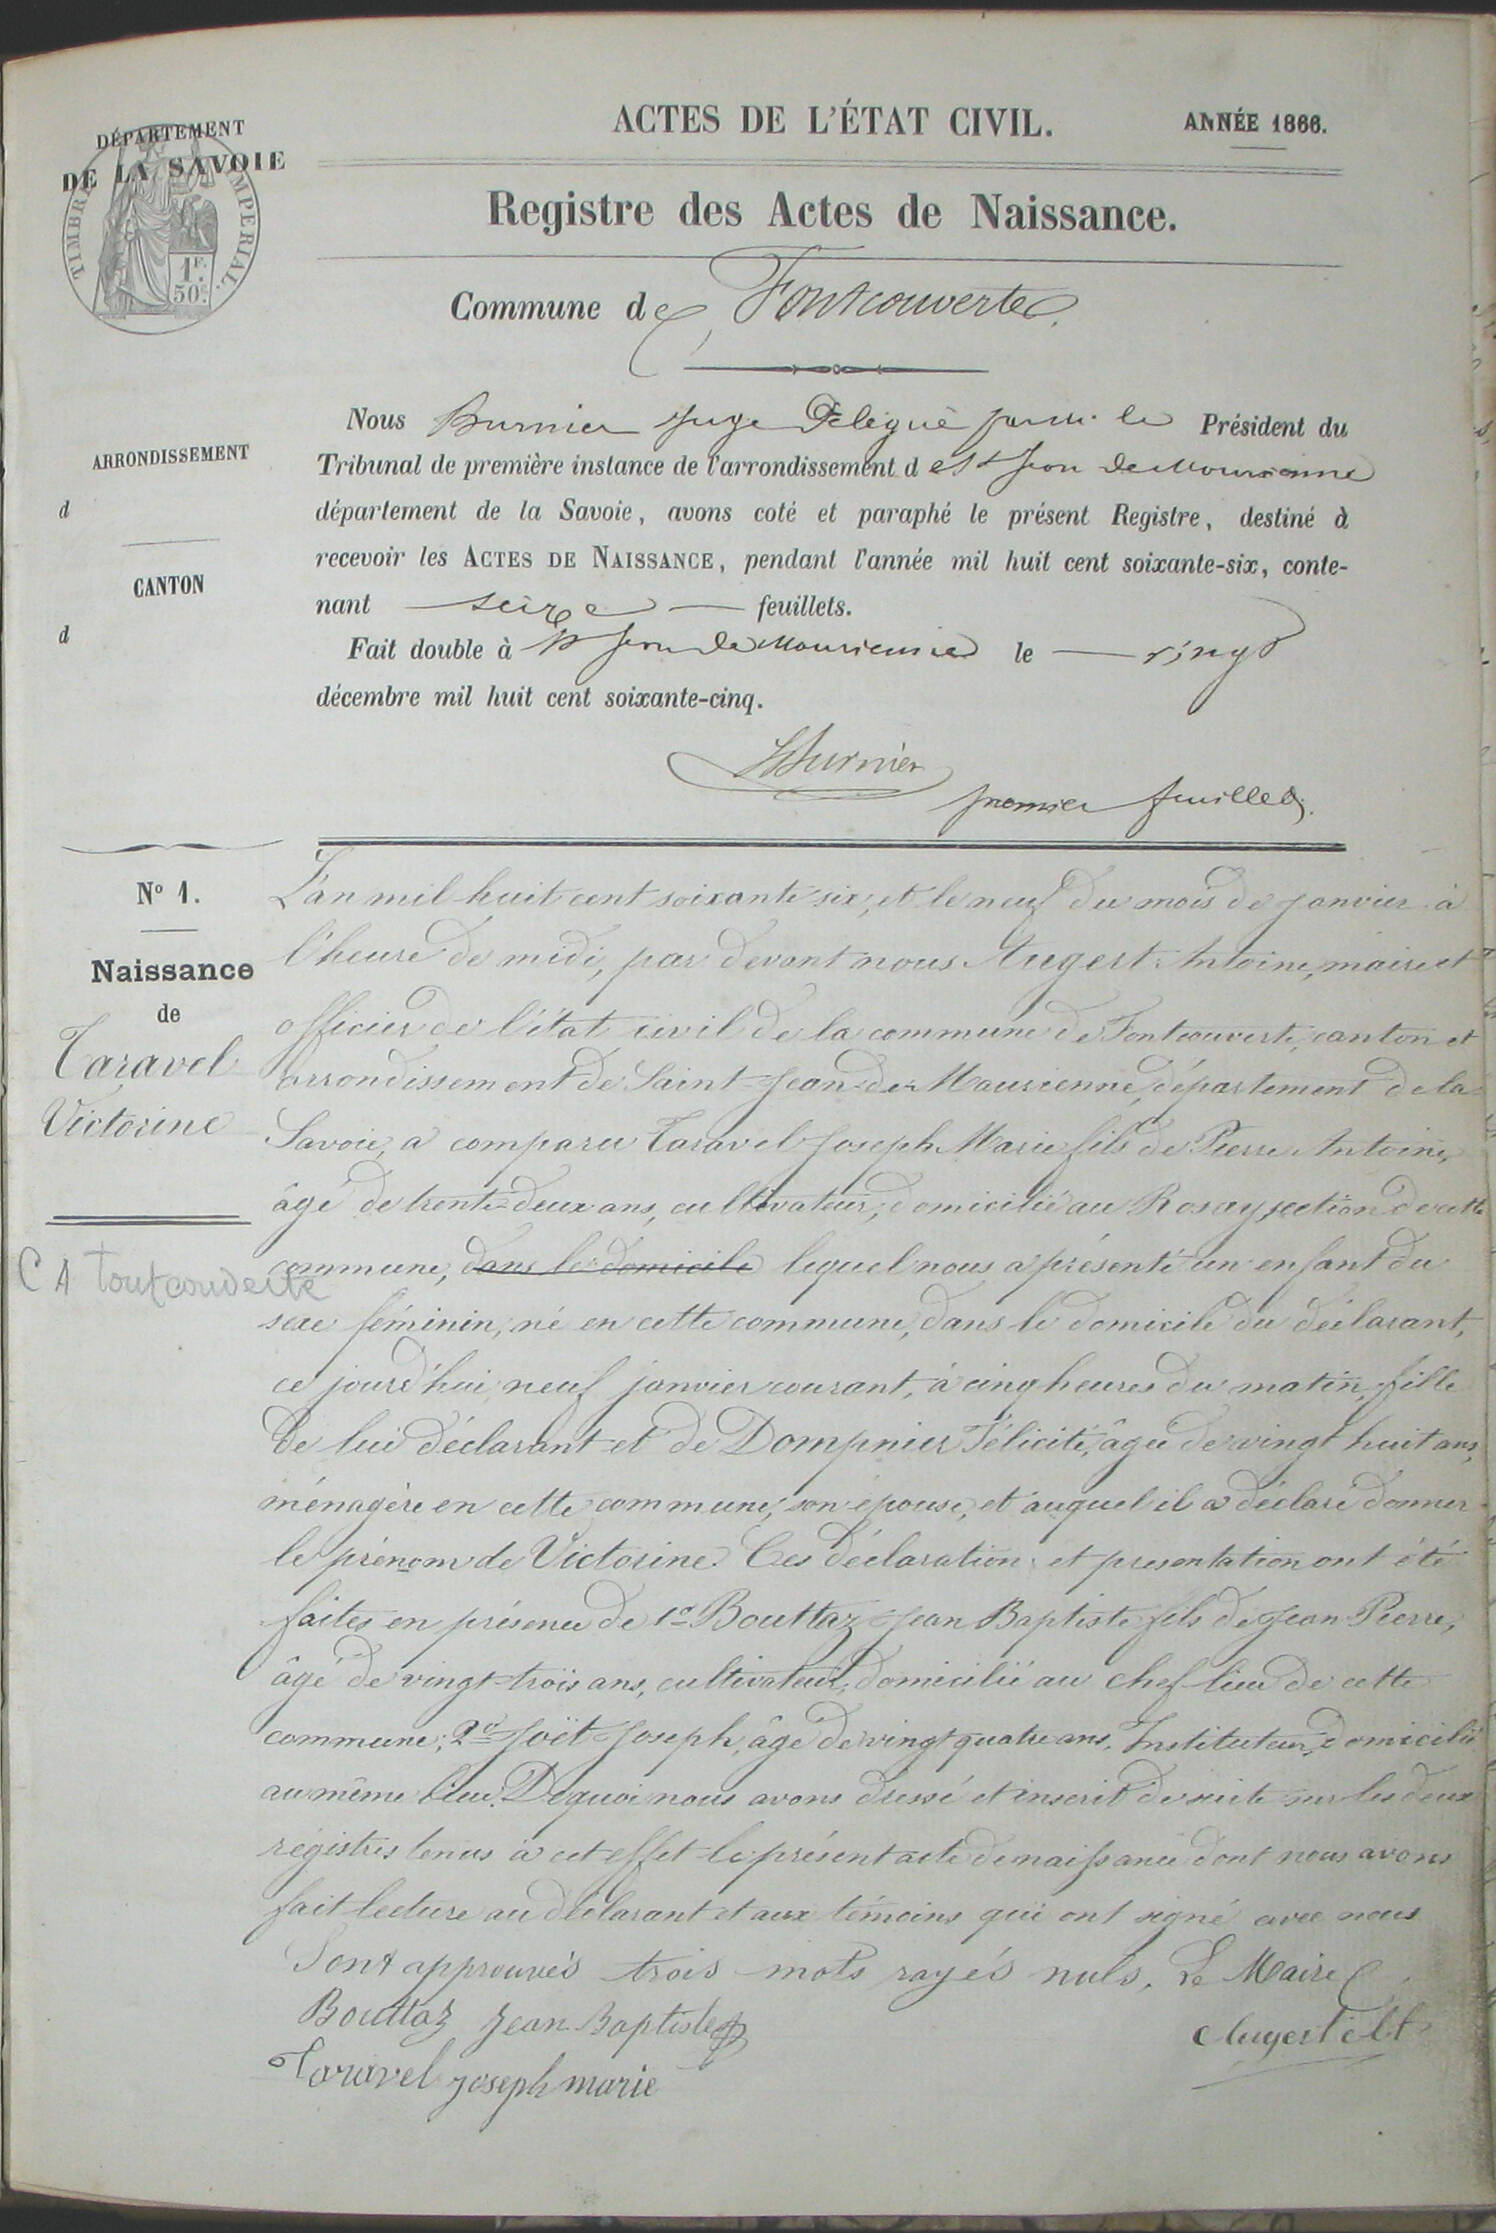 DÉPARTEMENT
DE LA SAVOIE
TIMBRE IMPERIAL.
1F.
50c.
ACTES DE L'ÉTAT CIVIL.
ANNÉE 1866.
Registre des Actes de Naissance.
Commune de Fontcouverte
ARRONDISSEMENT
d
CANTON
d
Nous Burnier Juge Délégué par m. le Président du
Tribunal de première instance de l'arrondissement de St Jean de Maurienne
département de la Savoie, avons coté et paraphé le présent Registre, destiné à
recevoir les ACTES DE NAISSANCE, pendant l'année mil huit cent soixante-six, conte-
nant seize feuillets.
Fait double à St Jean de Maurienne le vingt
décembre mil huit cent soixante-cinq.
Burnier
premier feuillet.
No 1.
Naissance
de
Taravel
Victorine
C A Fontcouverte
L'an mil huit cent soixante six, et le neuf du mois de janvier à
l'heure de midi, par devant nous Augert Antoine, maire et
officier de l'état civil de la commune de Fontcouverte, canton et
arrondissement de Saint-Jean-de-Maurienne, département de la
Savoie, a comparu Taravel Joseph Marie fils de Pierre Antoine,
âgé de trente-deux ans, cultivateur, domicilié au Rosay, section de cette
commune, dans le domicile lequel nous a présenté un enfant du
sexe féminin, né en cette commune, dans le domicile du déclarant,
ce jourd'hui neuf janvier courant, à cinq heures du matin, fille
de lui déclarant et de Dompnier Félicité, âgée de vingt huit ans,
ménagère en cette commune, son épouse, et auquel il a déclaré donner
le prénom de Victorine. Ces déclaration et presentation ont été
faites en présence de 1o Bouttaz Jean Baptiste fils de Jean Pierre,
âgé de vingt-trois ans, cultivateur, domicilié au chef-lieu de cette
commune; 2o Joët Joseph, âgé de vingt quatre ans, Instituteur, domicilié
au même lieu. De quoi nous avons dressé et inscrit de suite sur les deux
régistres tenus à cet effet le présent acte de naissance dont nous avons
fait lecture au déclarant et aux témoins qui ont signé avec nous
Sont approuvés trois mots rayés nuls. Le Maire
Bouttaz Jean Baptiste
Augert Ant
Taravel joseph marie